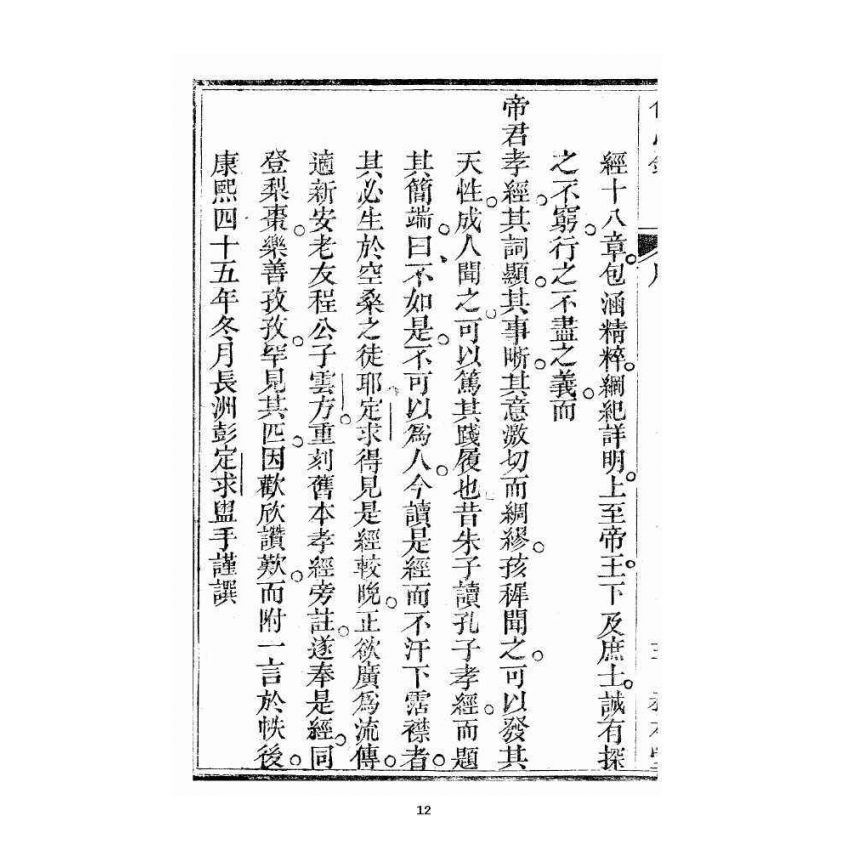 經十八章。包涵精粹。綱紀詳明。上至帝王。下及庶士。誠有探
之不窮。行之不盡之義。而
帝君孝經。其詞顯。其事晰。其意激切而綢繆。孩穉聞之。可以發其
天性。成人聞之。可以篤其踐履也。昔朱子讀孔子孝經。而題
其簡端。曰、不如是。不可以爲人。今讀是經而不汗下霑襟者。
其必生於空桑之徒耶。定求得見是經較晚。正欲廣爲流傳。
適新安老友程公子雲方。重刻舊本孝經旁註。遂奉是經。同
登梨棗。樂善孜孜。罕見其匹。因歡欣讚歎。而附一言於帙後。
康熙四十五年冬月長洲彭定求盥手謹譔
12